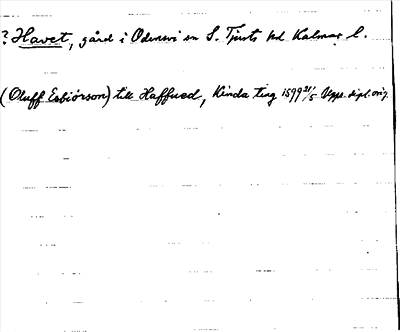 ? Havet, gård i Odensvi sn S. Tjusts hd Kalmar l.
(Oluff Esbiörson) till Haffued, Kinda ting 1599 21/5 Upps. dipl. orig.